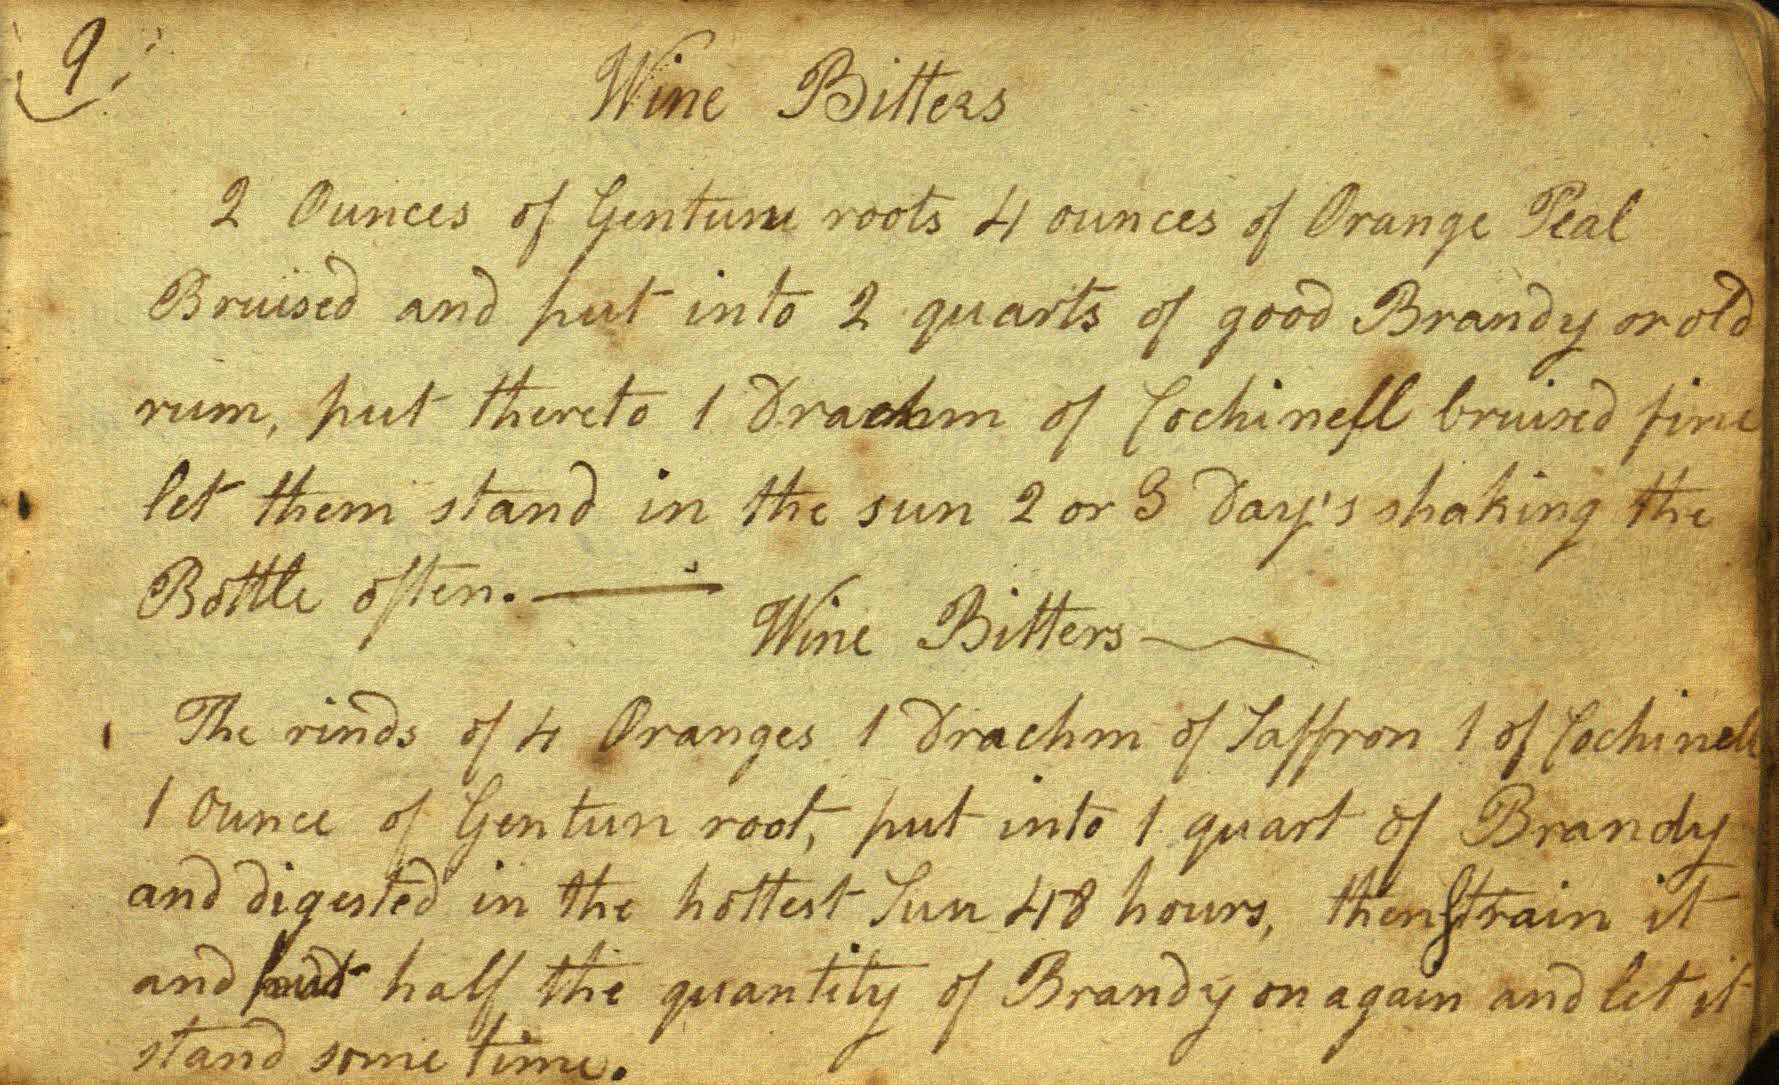 9
Wine Bitters
2 Ounces of Gentum roots 4 ounces of Orange Peal
Bruised and put into 2 quarts of good Brandy or old
rum, put thereto 1 Drachm of Cochinell bruised fine
let them stand in the sun 2 or 3 Day's shaking the
Bottle often.
Wine Bitters
The rinds of 4 Oranges 1 Drachm of Saffron 1 of Cochinell
1 Ounce of Gentun root, put into 1 quart of Brandy
and digested in the hottest Sun 48 hours, then Strain it
and put half the quantity of Brandy on again and let it
stand some time.